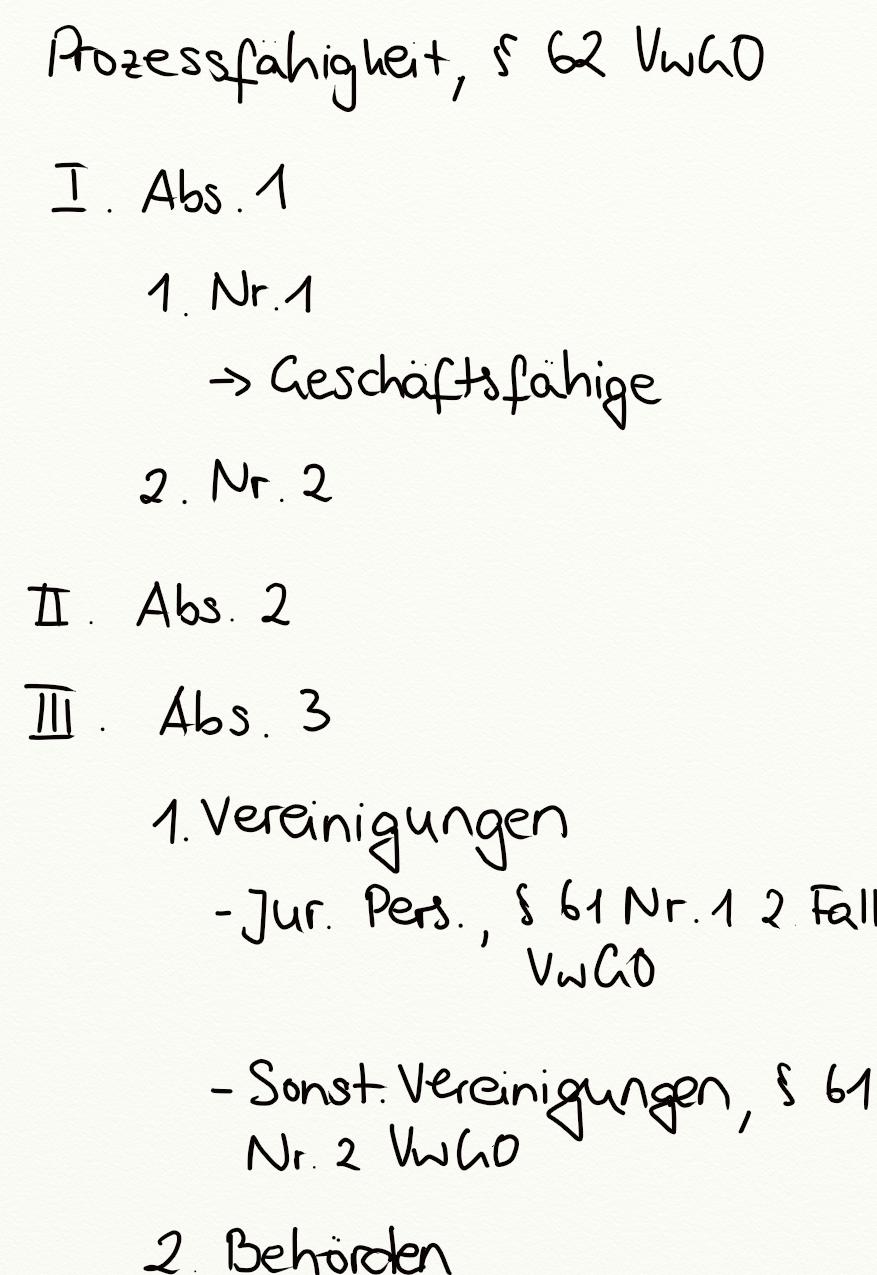 Prozessfähigkeit, § 62 VwGO
I. Abs. 1
1. Nr. 1
→ Geschäftsfähige
2. Nr. 2
II. Abs. 2
III. Abs. 3
1. Vereinigungen
- Jur. Pers., § 61 Nr. 1 2. Fall
VwGO
- Sonst. Vereinigungen, § 61
Nr. 2 VwGO
2. Behörden